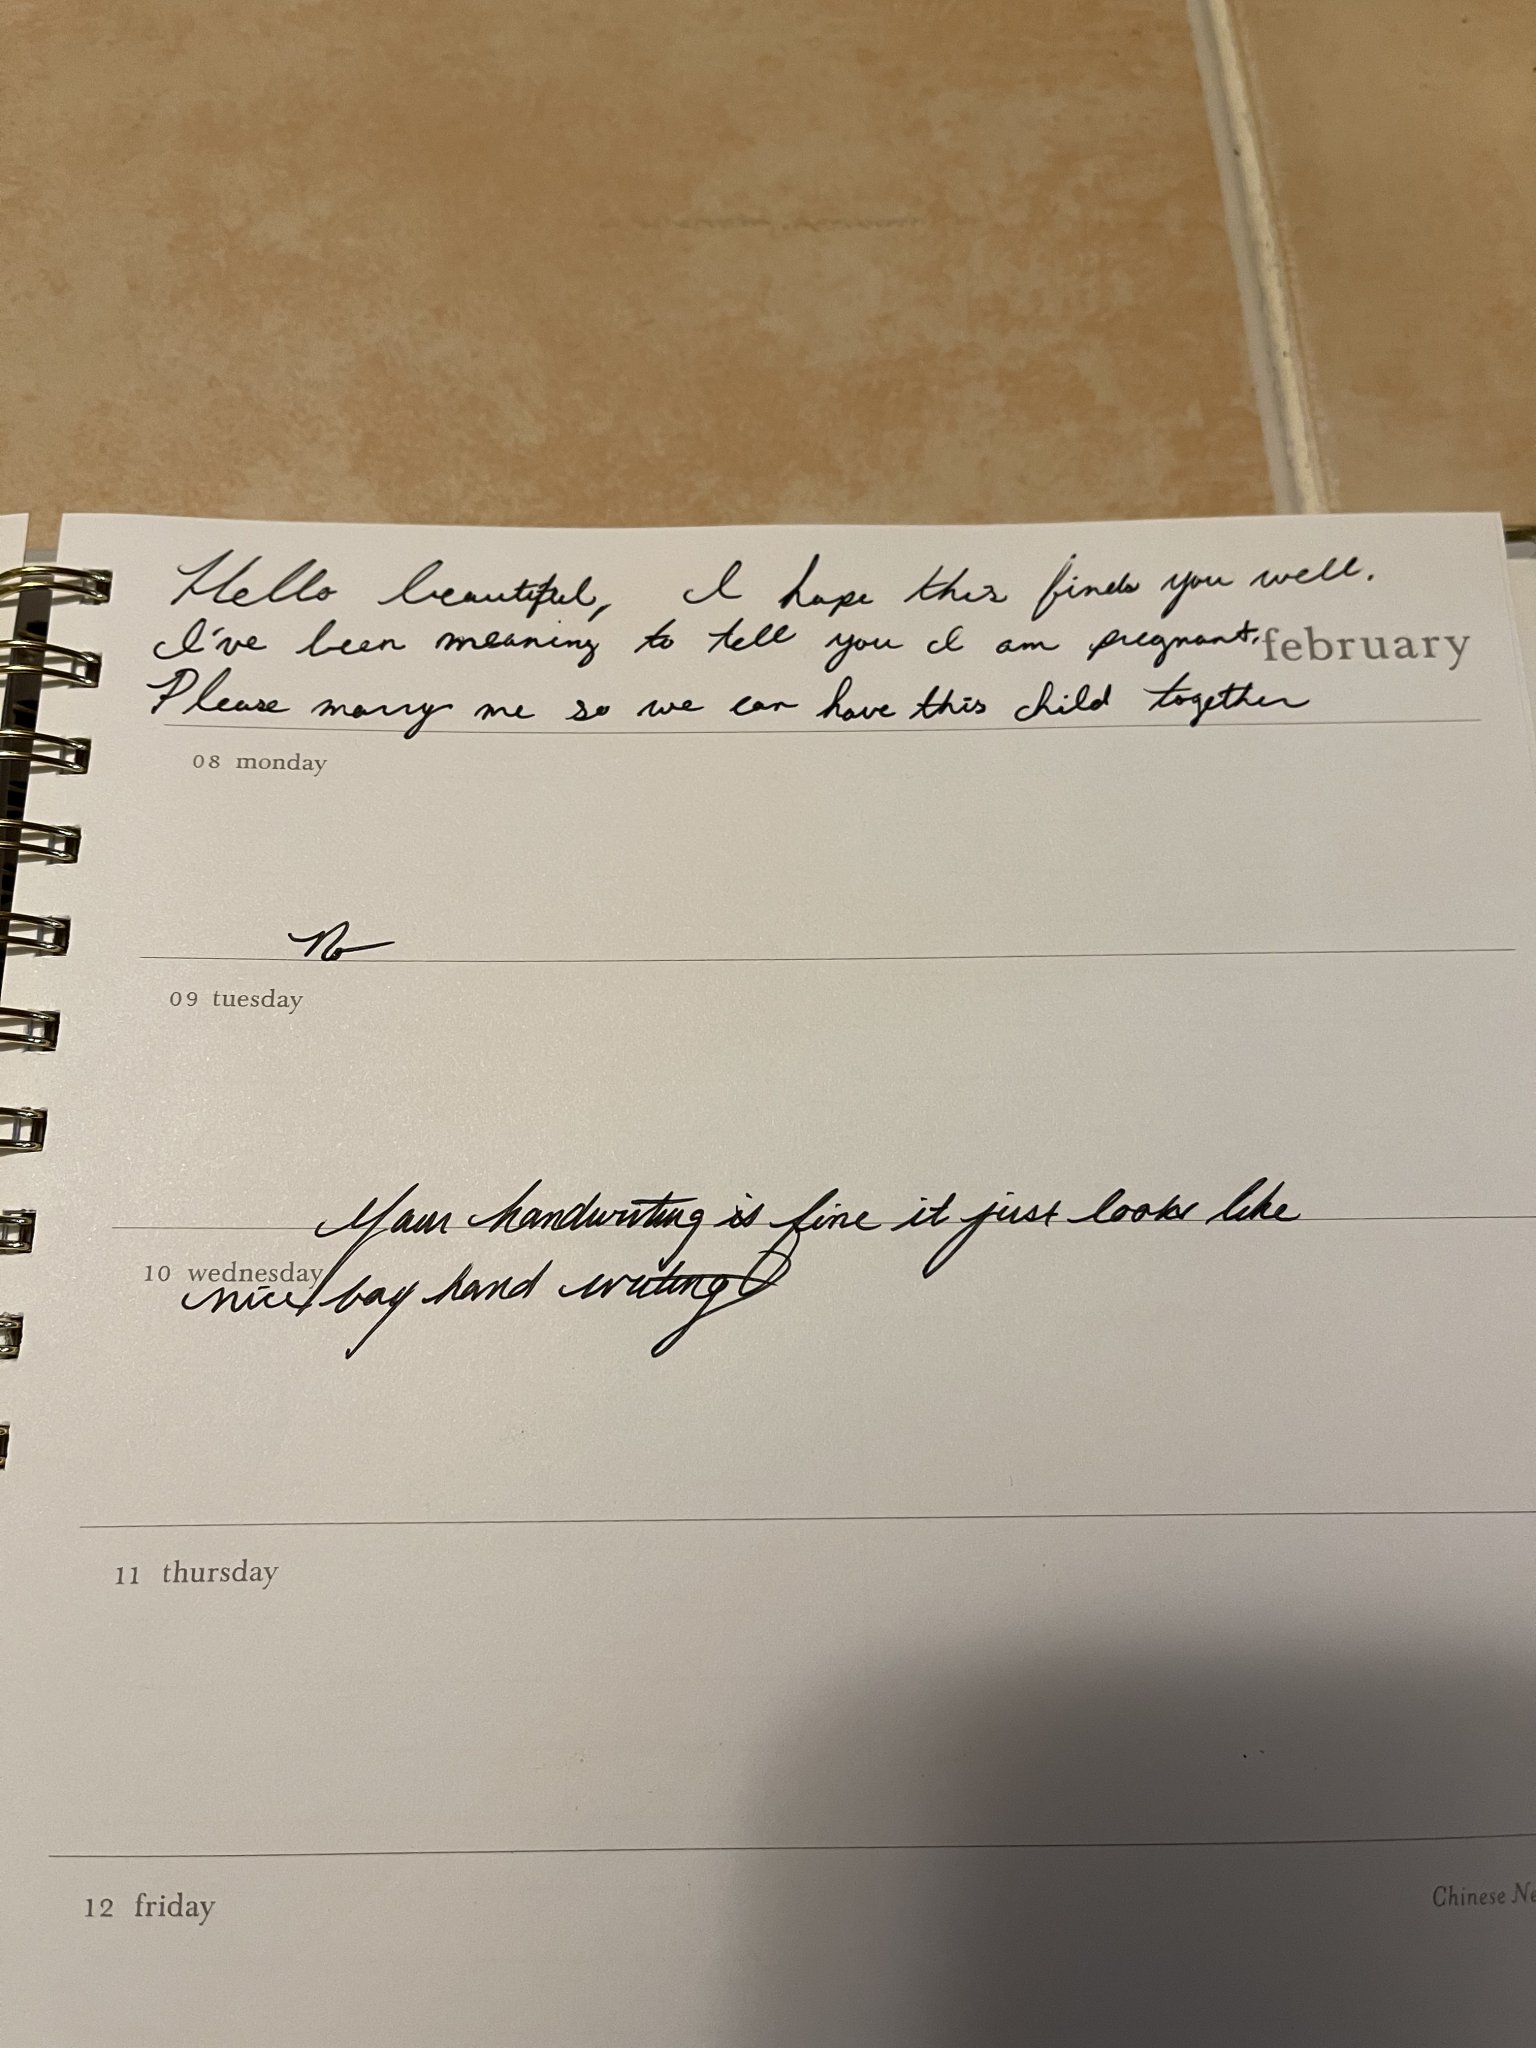 Hello beautiful, I hope this finds you well.
I've been meaning to tell you I am pregnant.
february
Please marry me so we can have this child together
08 monday
No
09 tuesday
Your handwriting is fine it just looks like
10 wednesday
nice boy hand writing
11 thursday
12 friday
Chinese Ne